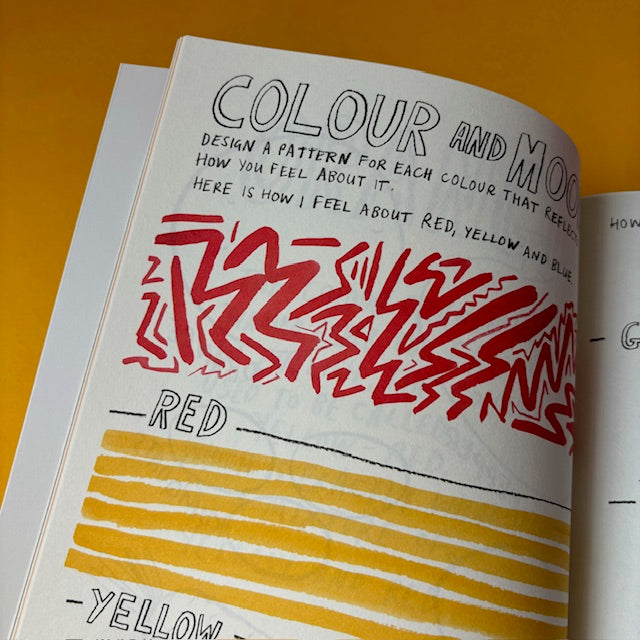 COLOUR AND MOO
DESIGN A PATTERN FOR EACH COLOUR THAT REFLECT
HOW YOU FEEL ABOUT IT.
HERE IS HOW I FEEL ABOUT RED, YELLOW AND BLUE.
RED
YELLOW
HOW
G